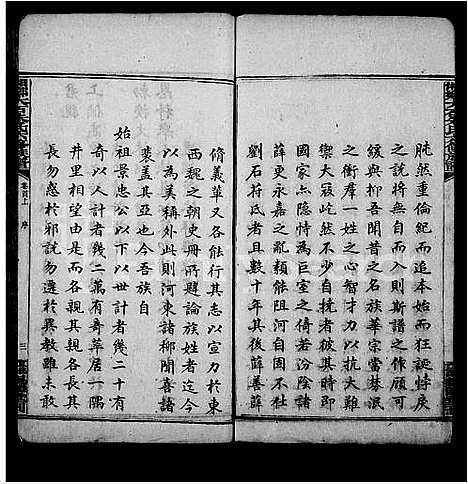 肫然重倫紀而追本始而狂誕悖戾
之說將無自而入則斯譜之作顧可
緩與抑吾聞昔之名族華宗當棼泯
之衝羣一姓之心智才力以抗大難
禦大寇屹然不少自挫者彼其時即
國家亦隱恃為巨室之倚若汾陰諸
薛更永嘉之亂類能阻河自固不仕
劉石苻氏者且數十年其後薛善薛
脩義華又各能行其志以宣力於東
西魏之朝史冊所載論族姓者迄今
以為美稱外此則河東諸柳聞喜諸
裴蓋其亞也今吾族自
始祖景忠公以下以世計者幾二十有
奇以人計者幾二萬有奇華居一隅
井里相望由是而各親其親各長其
長勿惑於邪說勿遷於異教雖未敢
卷首上 序
三